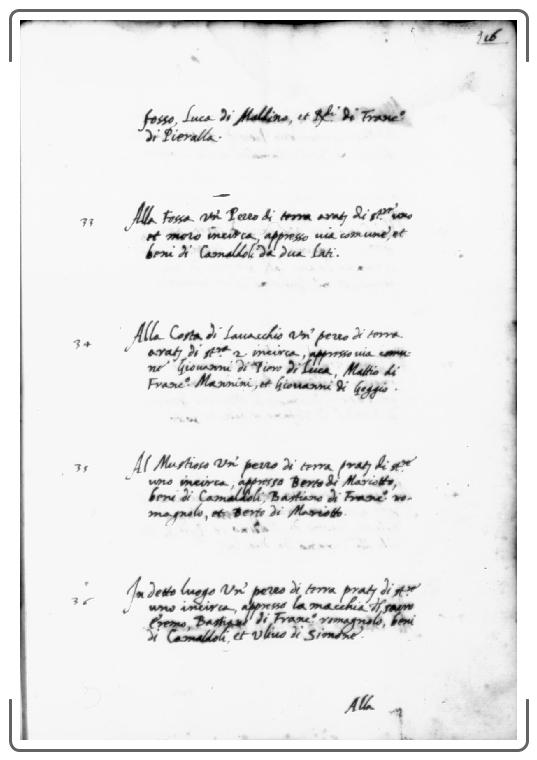 316
fosso, Luca di Mobilino, et Rdi di Franco
di Pieralla.
33
Alla Fossa Un Pezzo di terra aratᵃ di strᵉ uno
et mezo incirca, appresso via comune, et
beni di Camaldoli da dua Lati.
34
Alla Costa di Lavacchio Un' pezzo di terra
aratᵃ di strᵉ 2 incirca, appresso via comu-
ne' Giovanni di Piero di Luca, Mattio di
Francᵒ Mannini, et Giovanni di Goggio.
35
Al Mustioso Un' pezzo di terra pratᵃ di strᵉ
uno incirca, appresso Berto di Mariotto,
beni di Camaldoli, Bastiano di Francᵒ ro-
magnolo, et Berto di Mariotto.
36
In detto luogo Un' pezzo di terra pratᵃ di strᵉ
uno incirca, appresso la macchia sacro
Eremo, Bastiano di Francᵒ romagnolo, beni
di Camaldoli, et Ulivo di Simone.
Alla